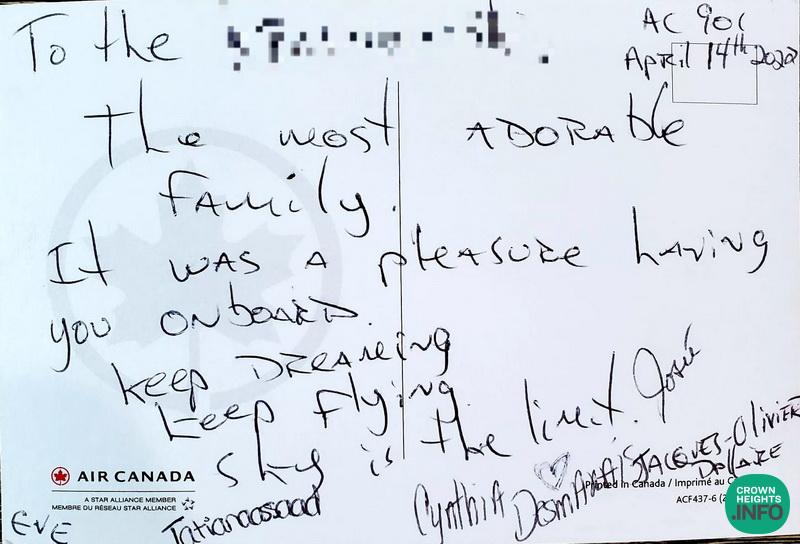 To the
AC 901
April 14th 2022
The most ADORAble
family.
It was a pleasure having
you onboard.
keep DREAMing
keep flying.
Sky is the limit. Josée
Cynthia Desmarais
JACQUES-Olivier
DALLAIRE
Tatianaassaad
EVE
AIR CANADA
A STAR ALLIANCE MEMBER
MEMBRE DU RÉSEAU STAR ALLIANCE
Printed in Canada / Imprimé au
ACF437-6
CROWN
HEIGHTS
.INFO